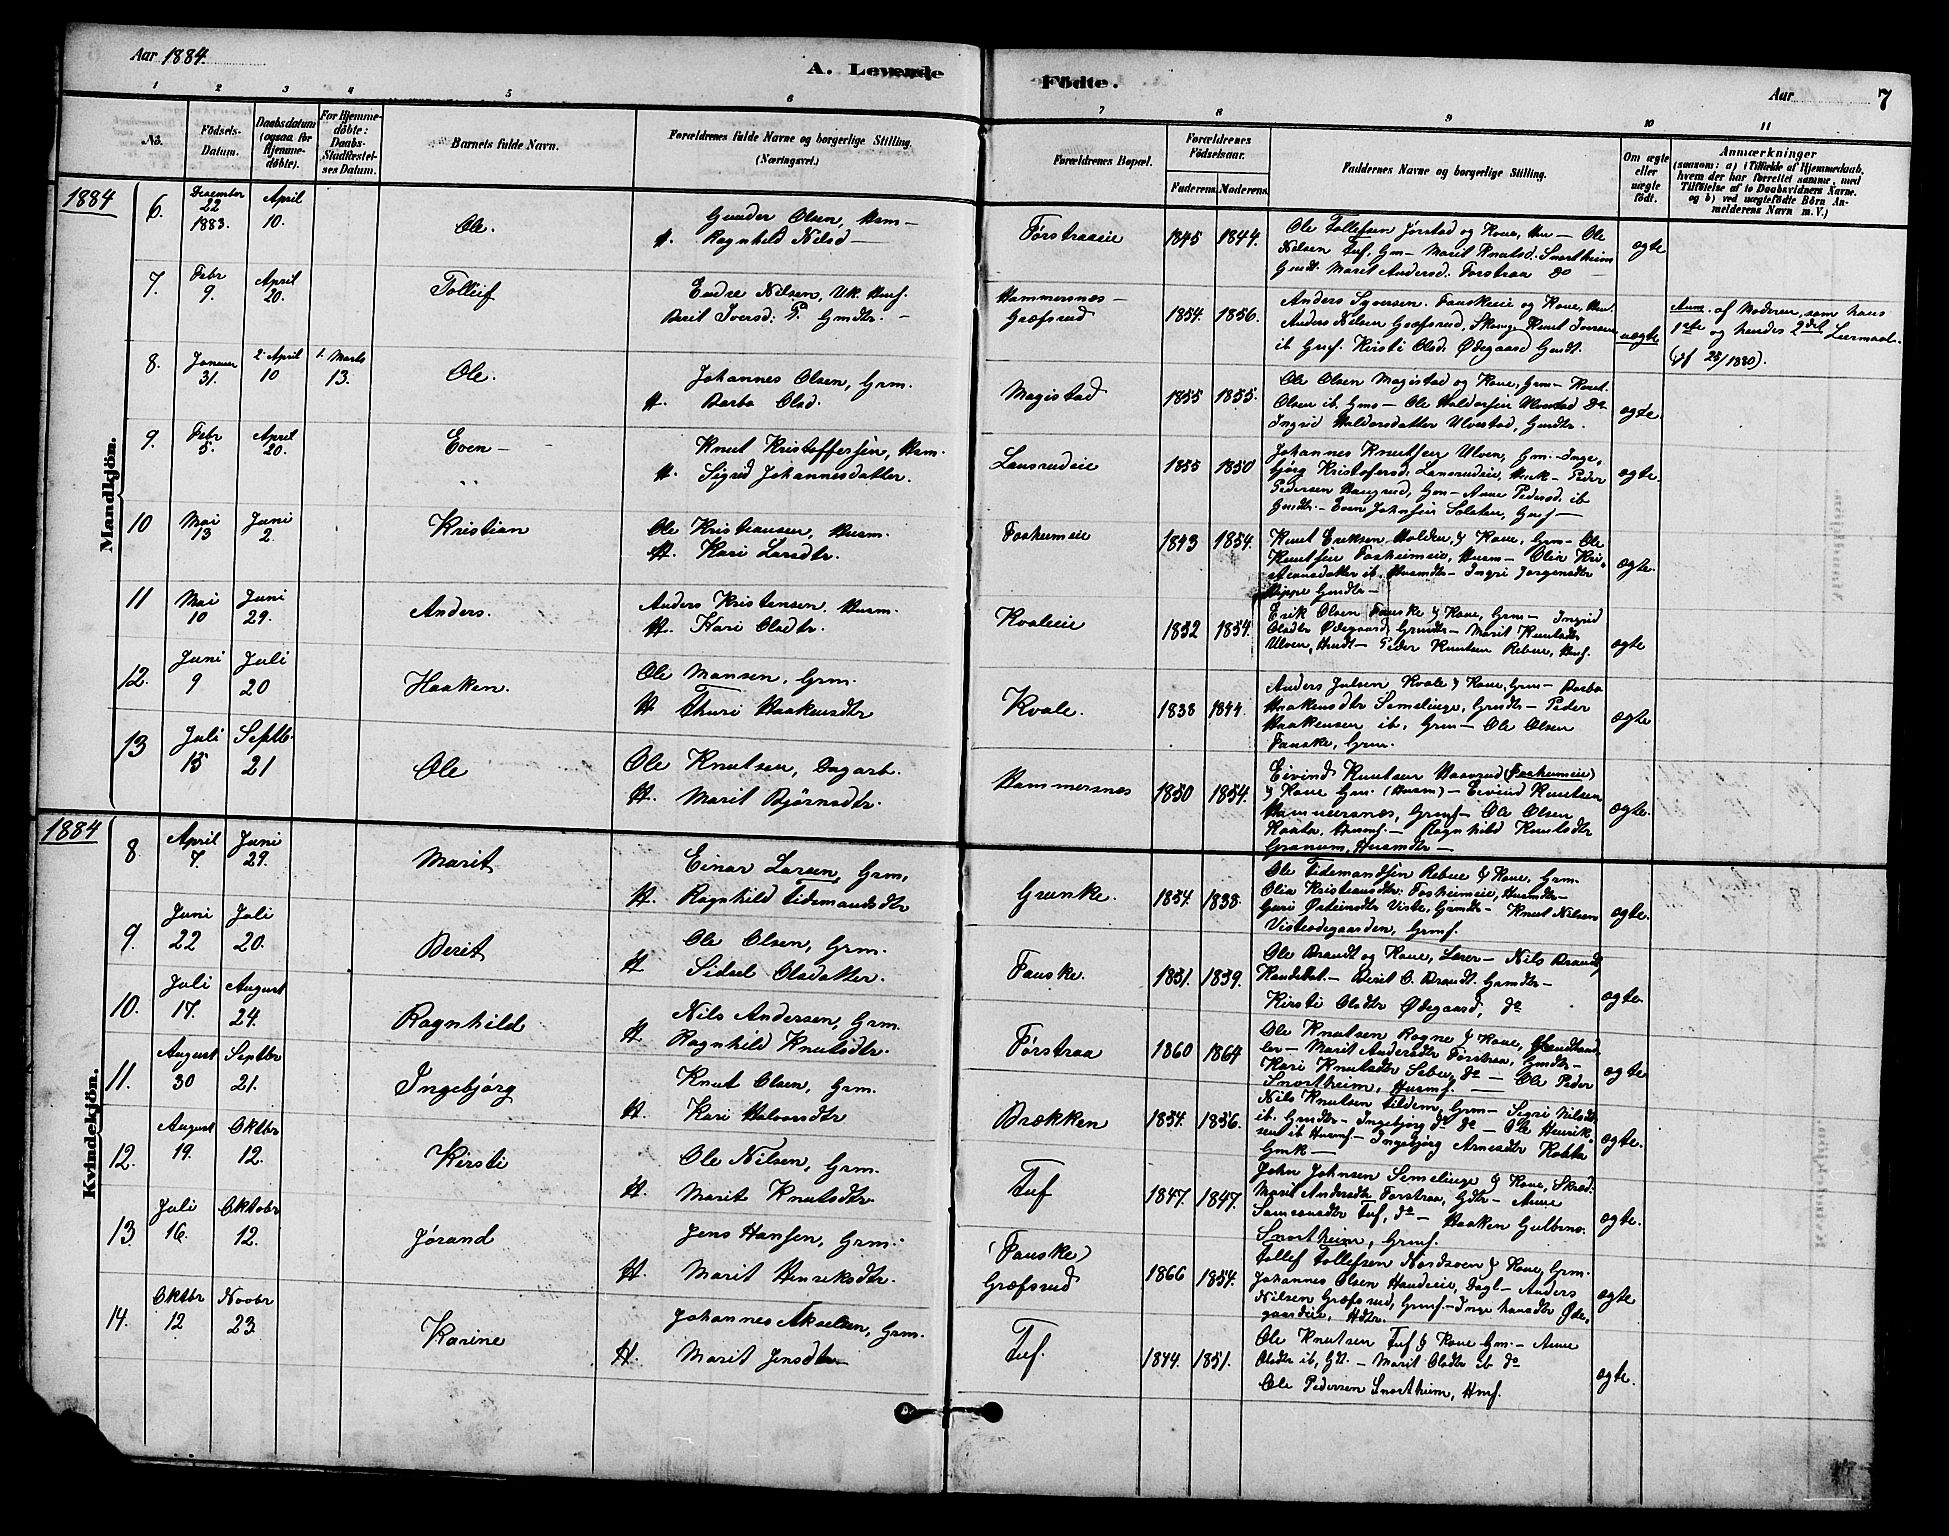 Aar 1884.
A. Levende
Födte.
Aar
7
1 2 3 4 5 6 7 8 9 10 11
No.
Födsels-Datum.
Daabsdatum (ogsaa for Hjemmedöbte).
For Hjemmedöbte: Daabs-Stadfæstelses Datum.
Barnets fulde Navn.
Forældrenes fulde Navne og borgerlige Stilling. (Næringsvei.)
Forældrenes Bopæl.
Forældrenes Födselsaar.
Faderens. Moderens.
Faddernes Navne og borgerlige Stilling.
Om ægte eller uægte födt.
Anmærkninger
(saasom: a) i Tilfælde af Hjemmedaab, hvem der har forrettet samme, med Tilföielse af to Daabsvidners Navne. og b) ved uægtefödte Börn Anmelderens Navn m. V.)
1884
Mandkjön.
6. December 22 1883. April 10. Ole. Gunder Olsen, Husm — H. Ragnhild Nilsd — Førstraaeie 1845 1844.
Ole Tollefsen Jørstad og Kone, Hu — Ole
Nilsen Tuf, Gm — Marit Knutsd. Snortheim
Gmdt. Marit Andersd. Førstraa do —
ægte
7. Febr 9. April 20. Tolleif Endre Nilsen, Uk. Husf. Berit Iversd: P. Gmdtr. — Hammersnæs — Græfsrud 1854. 1856.
Anders Syversen. Fauskeeie og Kone, Hu.
Anders Nilsen Græfsrud, Skomg Knut Iversen
ib Gmf. Kirsti Olsd. Ødegaard Gmdt.
uægte
Anm. af Moderen, som hans
1ste og hendes 2det Leiermaal.
8. Januar 31. 2. April 10 1. Marts 13. Ole. Johannes Olsen, Grm. H. Barbo Olsd. Magistad 1855 1855.
Ole Olsen Magistad og Kone, Grm — Knut
Olsen ib. Gms — Ole Haldorsen Ulvestad do
Ingrid Haldorsdatter Ulvestad, Gmdtr.
ægte.
9. Febr 5. April 20. Even — Knut Kristoffersen, Husm. H. Sigrid Johannesdatter. Lansrudeie 1855 1850
Johannes Knutsen Ulven, Gm. — Inge,
bjørg Kristofersd. Lansrudeie, Husk — Peder
Pedersen Haugrud, Gm — Anne Pedersd. ib
Gmdtr — Even Johnsen Solsten, Gmf —
ægte.
10 Mai 13 Juni 2. Kristian Ole Kristiansen, Husm. H. Kari Larsdtr. Fosheimeie 1843 1854.
Knut Eriksen Holden & Kone, Grm — Ole
Knutsen Fosheimeie, Husm — Olia Kri,
stiansdatter ib. Husmdtr — Ingri Jørgensdtr
Rippe Gmdtr —
ægte.
11 Mai 10 Juni 29. Anders. Anders Kristensen, Husm. H. Kari Olsdtr. Kvaleeie 1852 1854.
Erik Olsen Fauske & Kone, Grm — Ingrid
Olsdtr Ødegaard, Grmdtr — Marit Knutsdtr
Ulven, Hmdt — Peder Knutsen Rebne, Husf.
ægte
12. Juni 9 Juli 20 Haaken. Ole Monsen, Grm. H Thuri Haakensdtr Kvale. 1838 1844.
Anders Julsen Kvale & Kone, Grm — Barbo
Haakensdtr Semelinge, Grmdtr — Peder
Haakensen ib, Grm — Ole Olsen
Fauske, Grm.
ægte
13 Juli 15 Septb. 21 Ole Ole Knutsen, Dagarb. H. Marit Bjørnsdtr. Hammersnæs 1850 1854.
Eivind Knutsen Haavrud (Fosheimeie)
& Kone Gm (Husm) — Eivind Knutsen
Hammersnæs, Grmf — Ole Olsen
Kaata, Husmf. — Ragnhild Knutsdtr
Granum, Husmdtr —
ægte.
1884
Kvindekjön.
8. April 7 Juni 29. Marit Einar Larsen, Grm. H. Ragnhild Tidemandsdtr Grunke. 1834. 1838.
Ole Tidemandsen Rebne & Kone, Grm.
Olia Kristiansdtr: Fosheimeie, Husmdtr —
Guri Østeinsdtr Viste, Grmdtr — Knut Nilsen
Visteødegaarden, Grmf.
ægte.
9. Juni 22 Juli 20. Berit Ole Olsen, Grm. H Sidsel Olsdatter. Fauske. 1831. 1839.
Ole Brandt og Kone, Lærer — Nils Brandt
Kandidat — Berit O. Brandt. Grmdtr —
Kirsti Olsdtr Ødegaard, do
ægte.
10. Juli 17. August 24. Ragnhild Nils Andersen, Grm. H. Ragnhild Knutsdtr. Førstraa 1860 1864
Ole Knutsen Rogne & Kone, Landhand
ler — Marit Andersdtr Førstraa, Gmdtr —
Kari Knutsdtr Sebu, do — Ole Peder
Snortheim, Husmf.
ægte
11. August 30 Septbr 21. Ingebjørg Knut Olsen, Grm. H Kari Halvorsdtr Brækken 1834. 1856.
Nils Knutsen Lidem, Grm — Sigri Nilsdt
ib. Gmdtr — Ingebjørg do do — Ole Henrik,
sen ib Husmf — Ingebjørg Arnesdtr Robbø
Gmk —
ægte.
12. August 19. Oktbr 12. Kirsti Ole Nilsen, Grm. H. Marit Knutsdtr Tuf 1847. 1847.
John Johnsen Semelinge & Kone, Skræd:
Marit Andersdtr Førstraa, Gdtr — Anne
Tuf, do — Haaken Gulbrns.
Snortheim, Grmf.
ægte.
13. Juli 16. Oktobr 12. Jørand Jens Hansen, Grm. H Marit Henriksdtr. (Fauske) Græfsrud 1866 1854.
Tollef Tollefsen Nordsveen & Kone, Grm.
Johannes Olsen Haudeeie, Dagl — Anders
Nilsen Græfsrud, Grmf — Inge Hansdtr Øde,
gaardeie, Hdtr.
ægte
14. Oktbr 12 Novbr 23. Karine Johannes Akselsen, Grm. H. Marit Jensdtr Tuf. 1844. 1851.
Ole Knutsen Tuf & Kone Gm. — Anne
Olsdtr ib, Gdt. — Marit Olsdtr ib do
Ole Pedersen Snortheim, Hmf.
ægte.